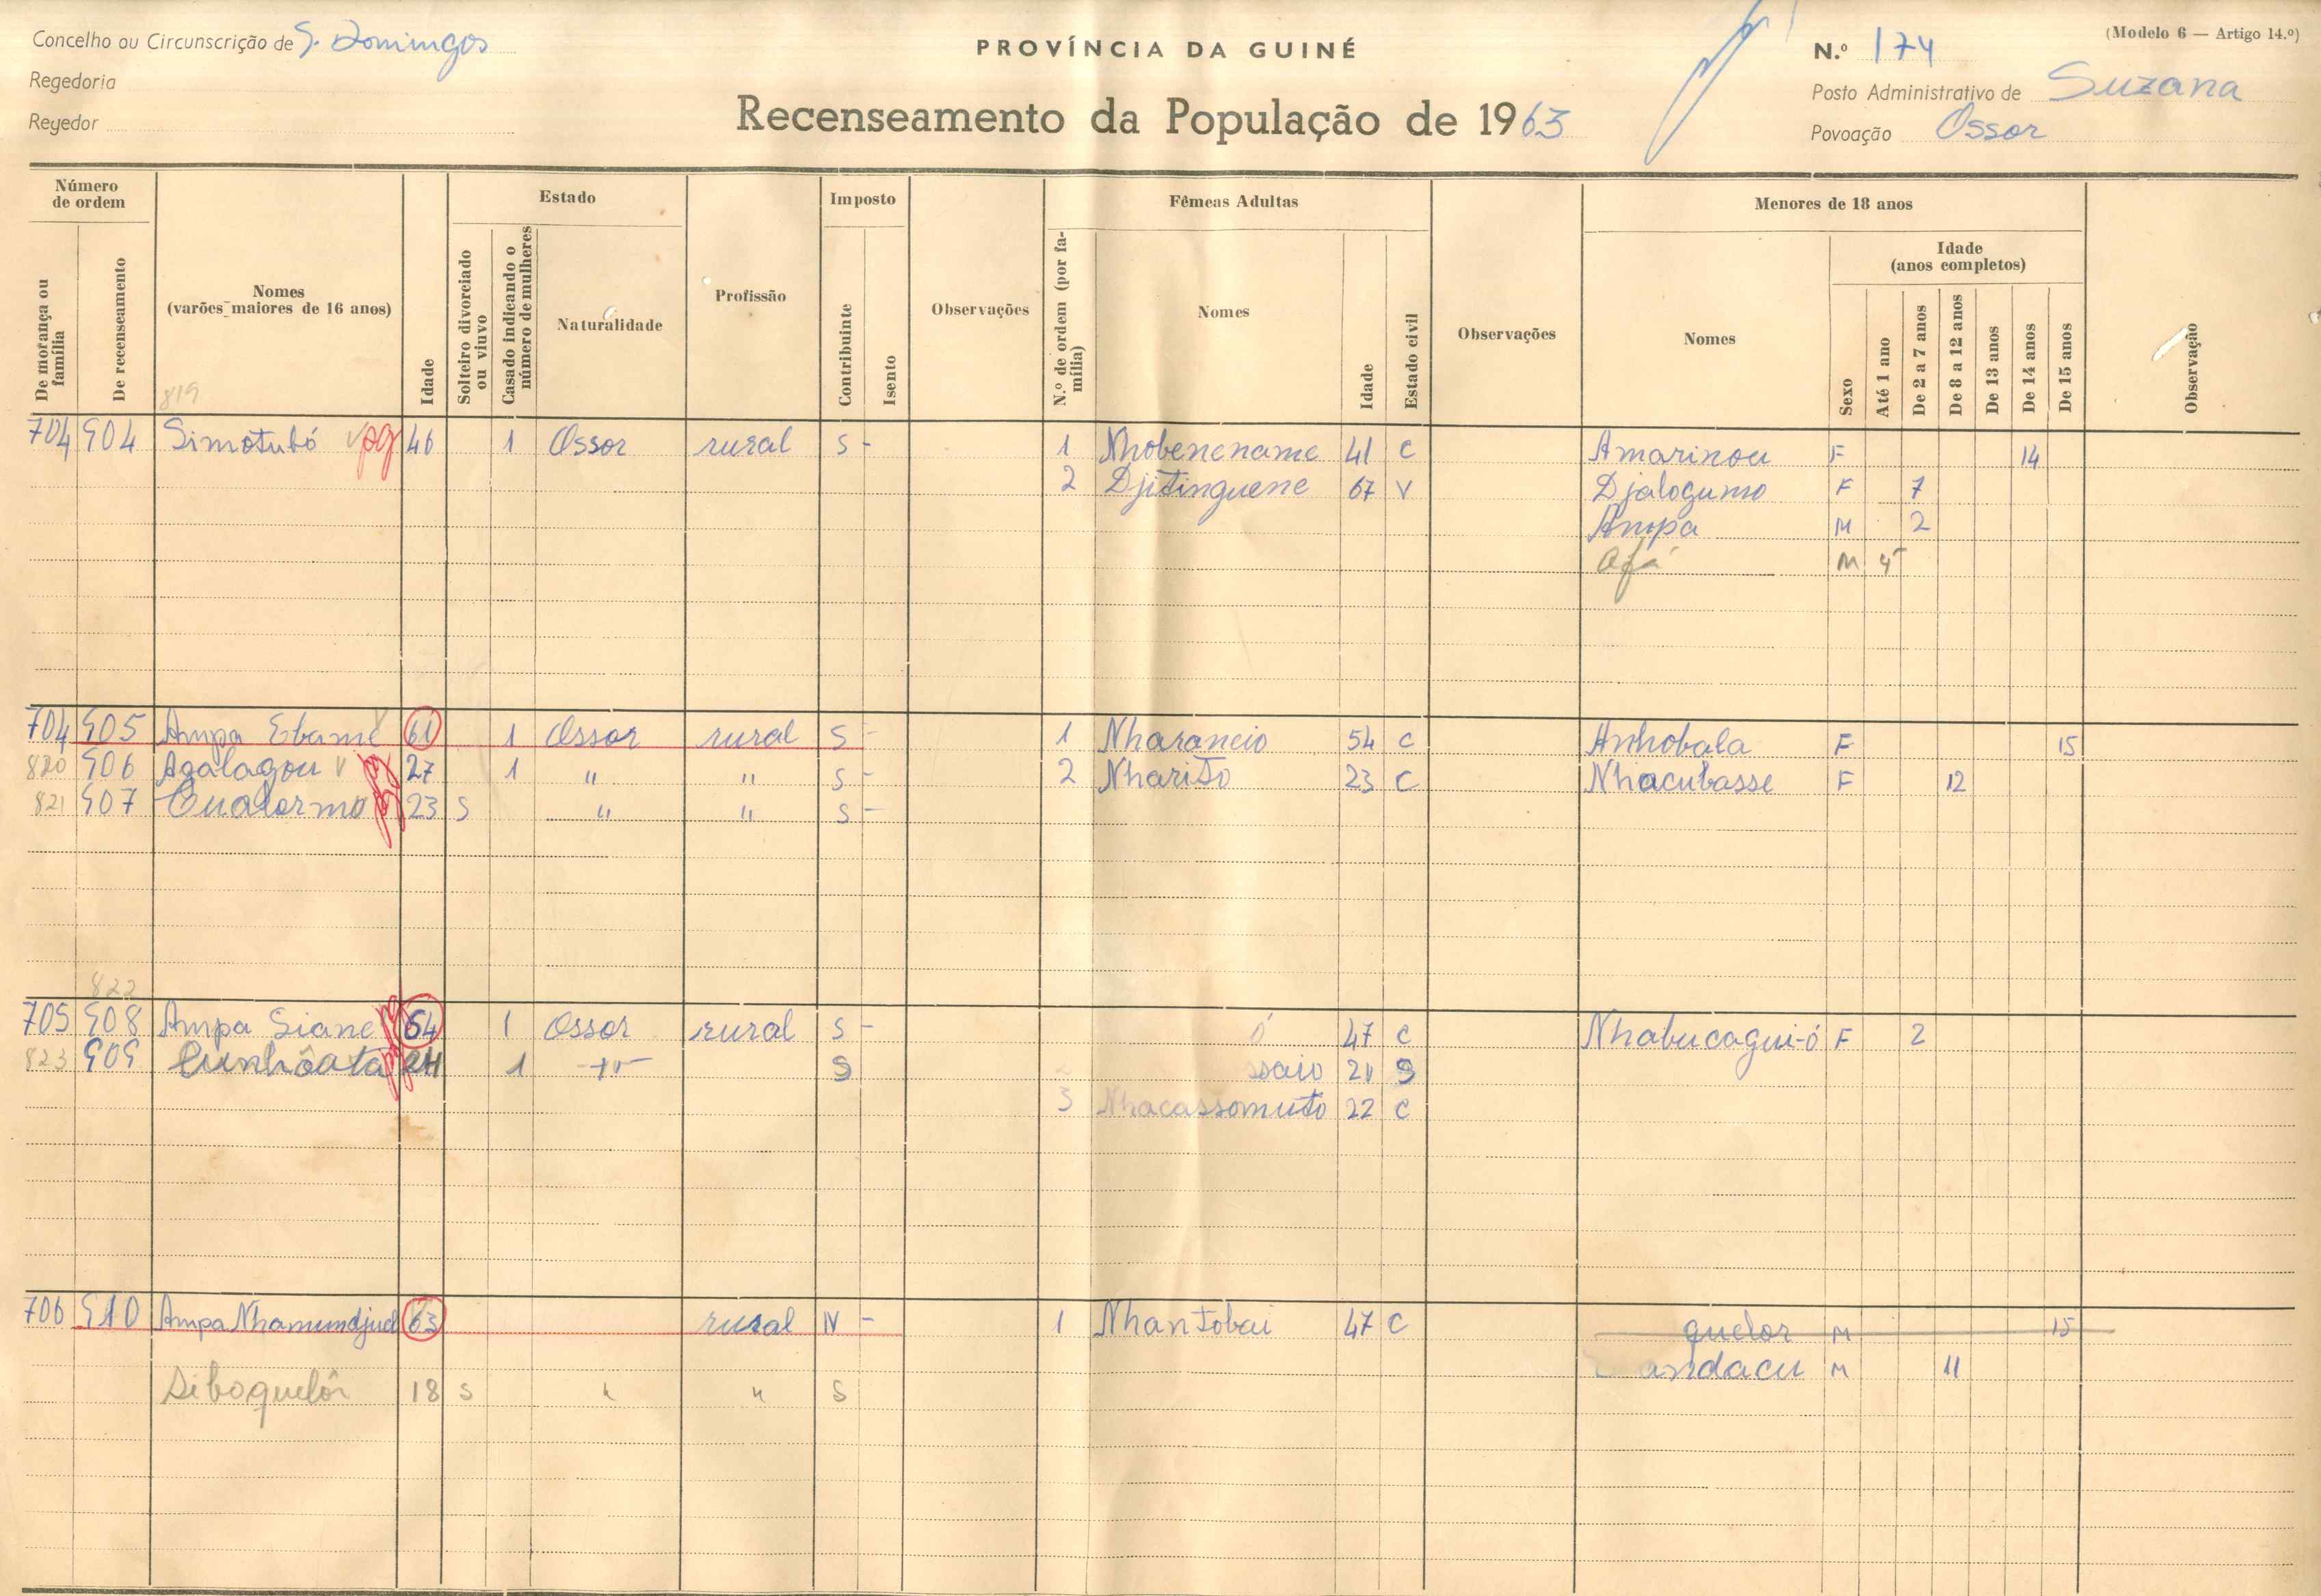 Concelho ou Circunscrição de S. Domingos
Regedoria
Regedor
PROVÍNCIA DA GUINÉ
Recenseamento da População de 1963
(Modelo 6 — Artigo 14.º)
N.º 174
Posto Administrativo de Suzana
Povoação Ossor
Número de ordem
De morança ou família
De recenseamento
Nomes
(varões maiores de 16 anos)
819
Idade
Estado
Solteiro divorciado ou viuvo
Casado indicando o número de mulheres
Naturalidade
Profissão
Imposto
Contribuinte
Isento
Observações
Fêmeas Adultas
N.º de ordem (por família)
Nomes
Idade
Estado civil
Observações
Menores de 18 anos
Nomes
Sexo
Idade
(anos completos)
Até 1 ano
De 2 a 7 anos
De 8 a 12 anos
De 13 anos
De 14 anos
De 15 anos
Observação
704 904 Simotubó pg 46 1 Ossor rural S - 1 Nhobenename 41 C Amarinou F 14
2 Djitinguene 67 V Djalogumo F 7
Ampa M 2
Afá M
704 905 Ampa Ebame 61 1 Ossor rural S - 1 Nharancio 54 C Anhobala F 15
820 906 Agalagou V pg 27 1 " " S - 2 Nharito 23 C Nhacubasse F 12
821 907 Cualormo pg 23 S " " S -
822
705 908 Ampa Siane pg 64 1 Ossor rural S - ó 47 C Nhabucagui-ó F 2
823 909 Cunhôata pg 24 1 S saio 21 S
3 Nhacassomuto 22 C
706 910 Ampa Nhamundjud 63 rural N - 1 Nhantobai 47 C quelor M 15
andacu M 11
Siboquelôr 18 S " " S